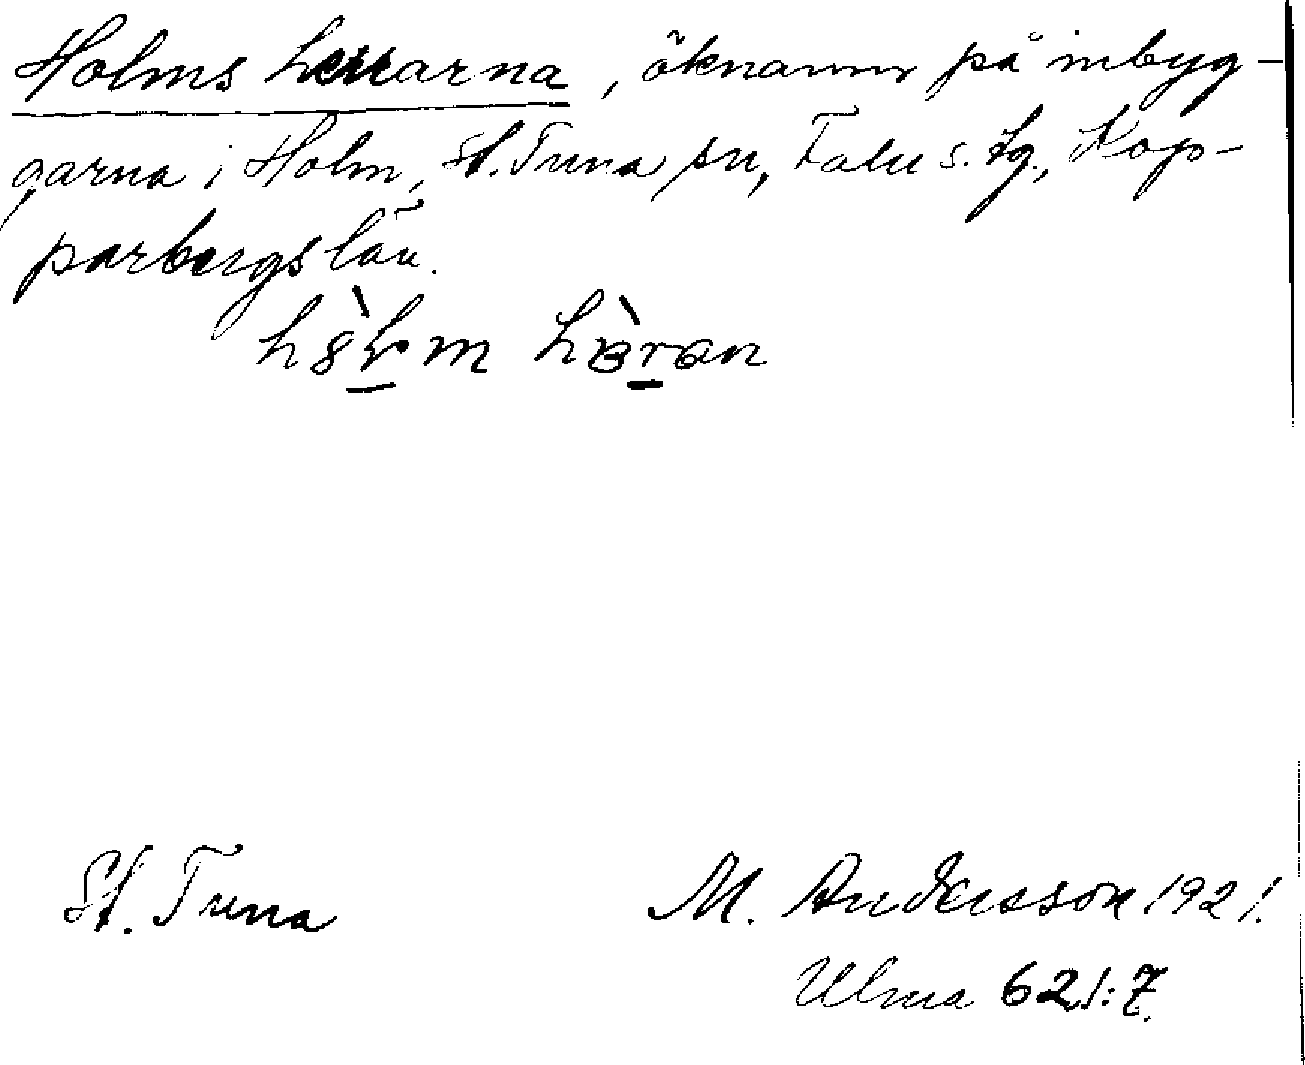 Holms herrarna, öknamn på inbyg-
garna i Holm, St. Tuna sn, Falu s. tg., Kop-
parbergs län.
St. Tuna
M. Andersson 1921.
Ulma 621:7.